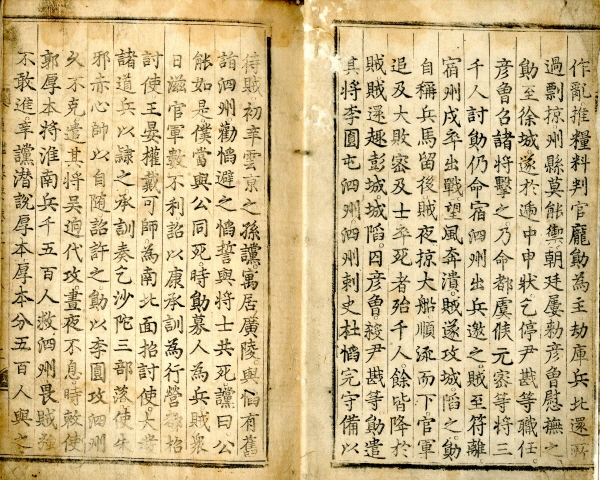 作亂推糧料判官龐勛為主劫庫兵北還所
過剽掠州縣莫能禦朝廷屢勑彦魯慰撫之
勛至徐城遂於遞中申狀乞停尹戡等職任
彦魯召諸將擊之乃命都虞候元密等將三
千人討勛仍命宿泗州出兵邀之賊至符離
宿州戍卒出戰望風奔潰賊遂攻城陷之勛
自稱兵馬留後賊夜掠大船順流而下官軍
追及大敗密及士卒死者殆千人餘皆降於
賊賊遂趣彭城城陷囚彦魯殺尹戡等勛遣
其將李圓屯泗州泗州刺史杜慆完守備以
待賊初辛雲京之孫讜寓居廣陵與慆有舊
詣泗州勸慆避之慆誓與將士共死讜曰公
能如是僕當與公同死時勛募人為兵賊衆
日滋官軍數不利詔以康承訓為行營都招
討使王晏權戴可師為南北面招討使大發
諸道兵以隷之承訓奏乞沙陀三部落使朱
邪赤心帥以自随詔許之勛以李圓攻泗州
久不克遣其將吳迥代攻晝夜不息時敕使
郭厚本將淮南兵千五百人救泗州畏賊強
不敢進辛讜潜說厚本厚本分五百人與之